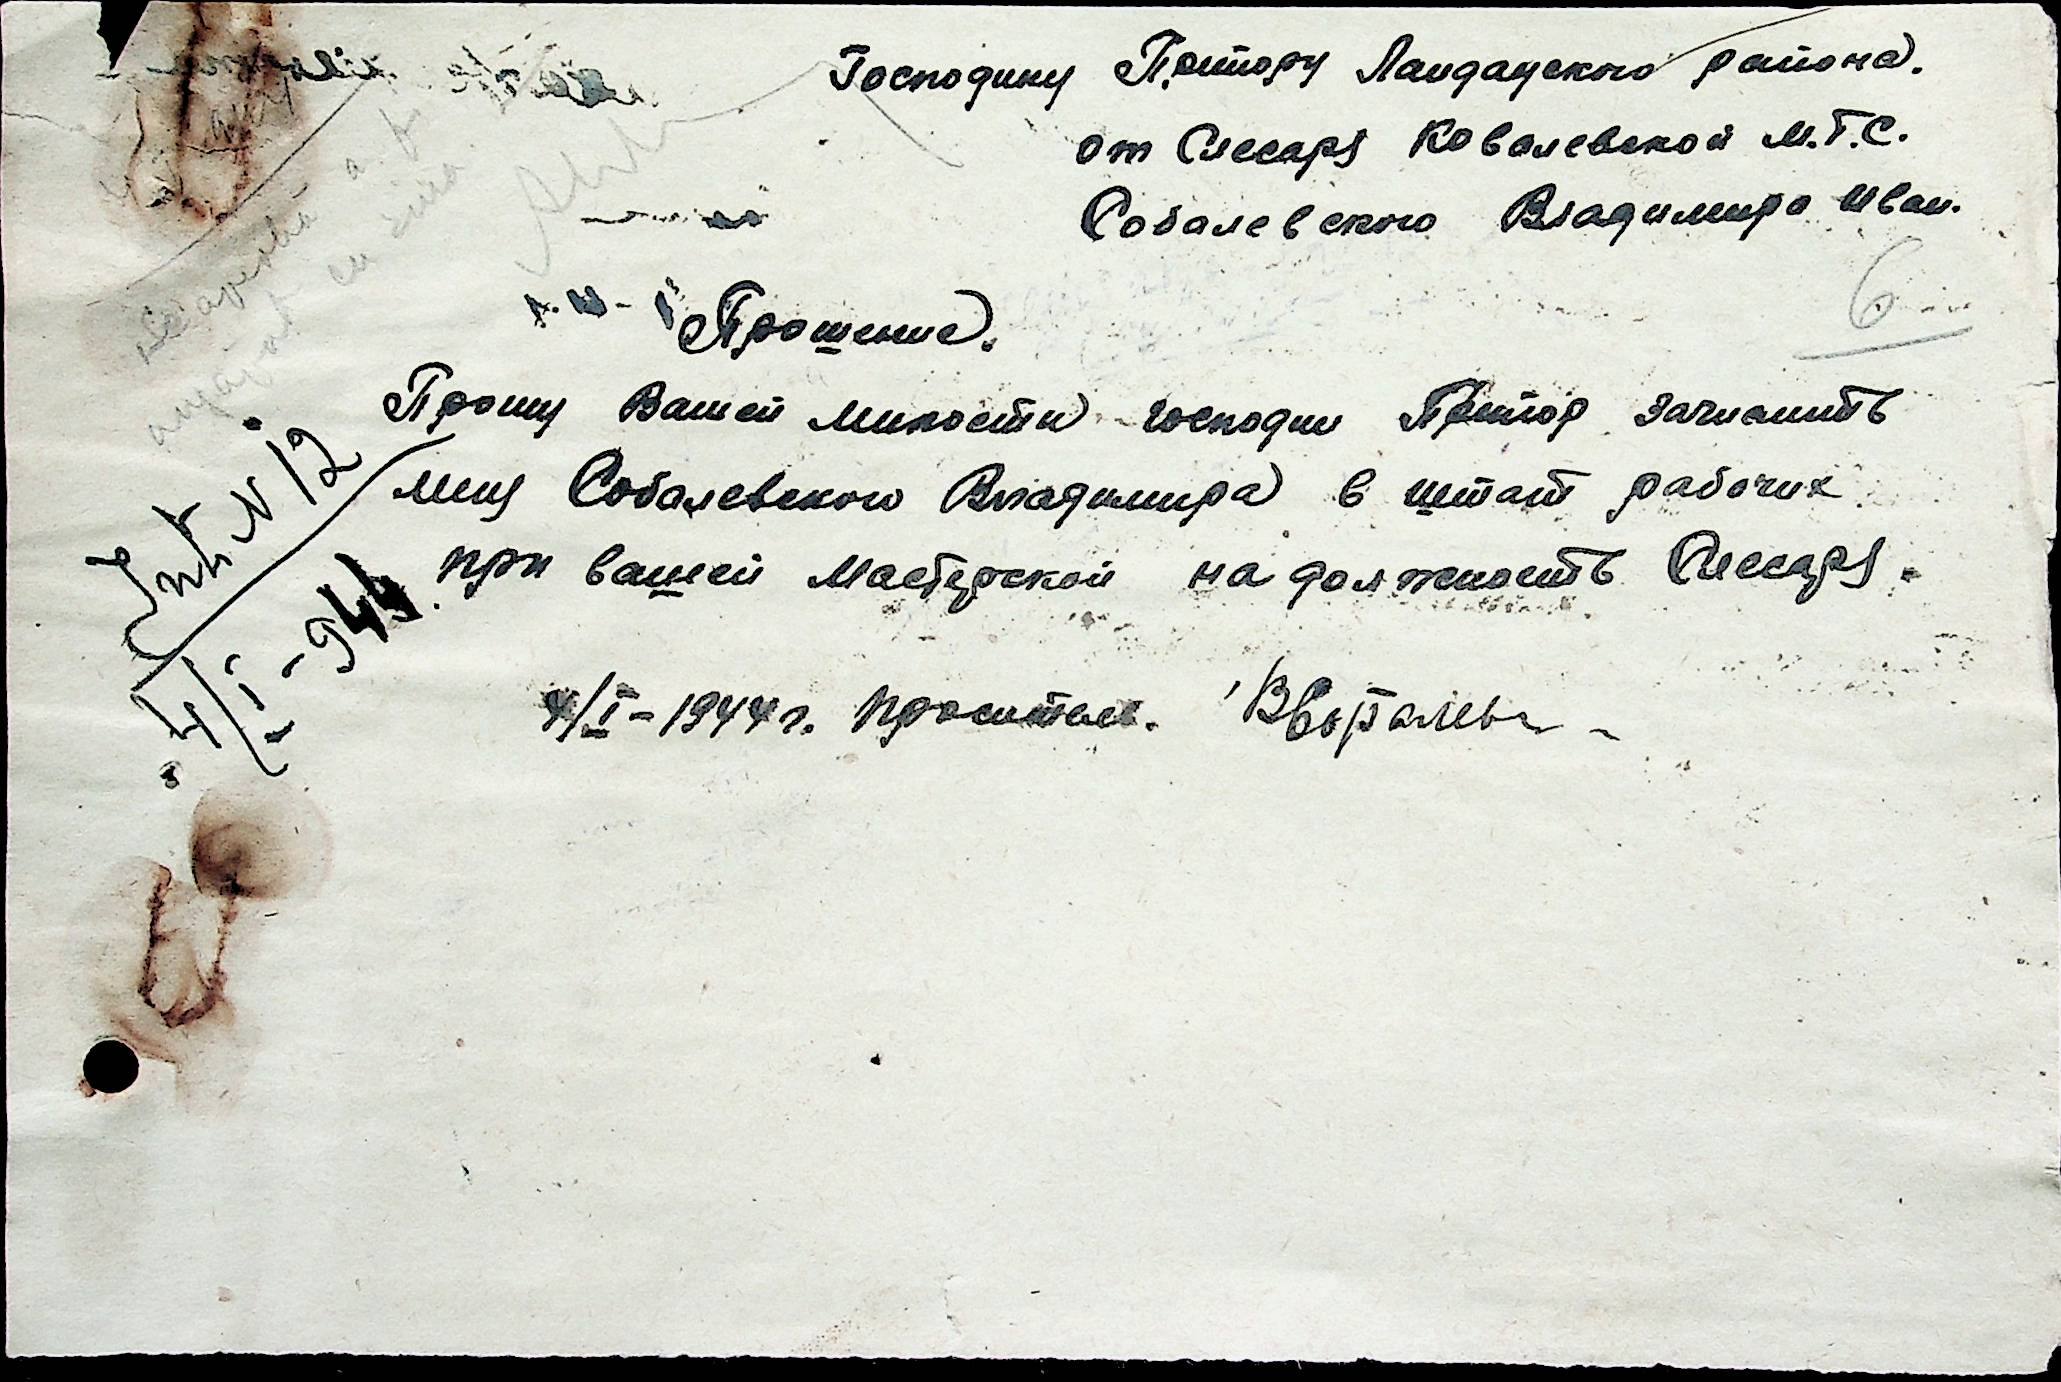 Господину Претору Ландауского района.
от Слесаря Ковалевской М.Т.С.
Собалевского Владимира Иван.
6
Прошение.
Прошу Вашей милости господин Претор зачислить
мня Собалевского Владимира в штат рабочих
при вашей Мастерской на должность Слесаря.
4/I-1944 г. проситель.
Int. N 12
4/I-944